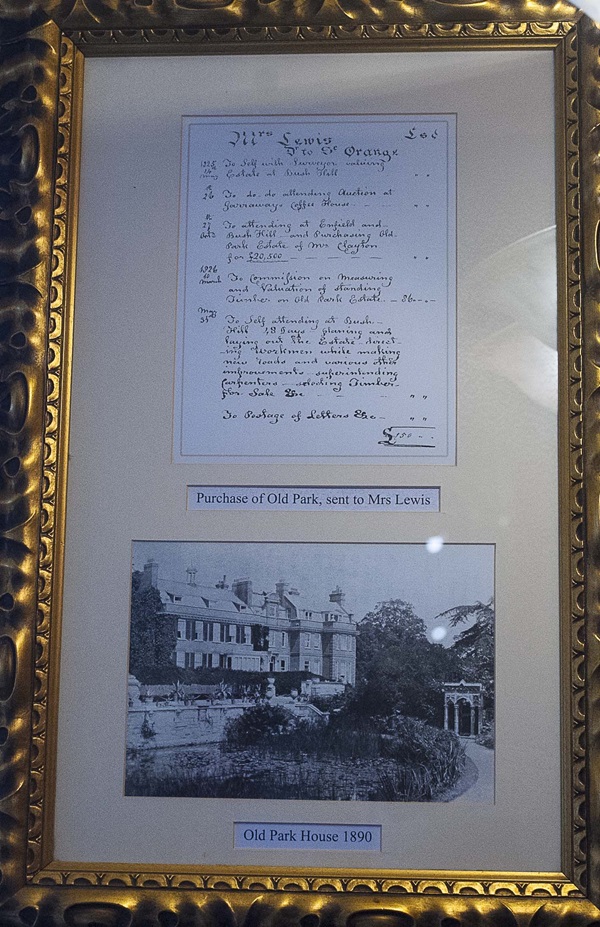 Mrs Lewis £sd
Dr to Sl Orange
To Self with Surveyor valuing
Estate at Bush Hill " "
26 To do. do attending Auction at
Garraways Coffee House. " "
27 To attending at Enfield and
Octr Bush Hill and Purchasing Old
Park Estate of Mr Clayton
for £20,500 " "
1926
March To Commission on Measuring
and Valuation of standing
Timber on Old Park Estate. 36
May
To Self attending at Bush
Hill 78 Days planing and
laying out the Estate direct
ing Workmen while making
new roads and various other
improvements superintending
Carpenters selecting Timber
for Sale &c " "
To Postage of Letters &c " "
£150 " "
Purchase of Old Park, sent to Mrs Lewis
Old Park House 1890